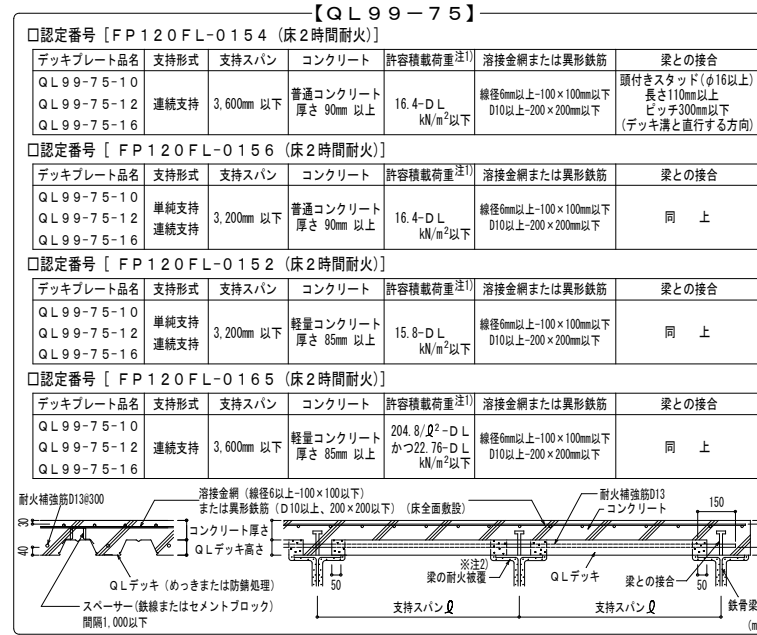 【QL99-75】
□認定番号［FP120FL-0154（床2時間耐火）］
デッキプレート品名 支持形式 支持スパン コンクリート 許容積載荷重注1) 溶接金網または異形鉄筋 梁との接合
QL99-75-10
QL99-75-12
QL99-75-16
連続支持
3,600mm 以下
普通コンクリート
厚さ 90mm 以上
16.4-DL
kN/m²以下
線径6mm以上-100×100mm以下
D10以上-200×200mm以下
頭付きスタッド(φ16以上)
長さ110mm以上
ピッチ300mm以下
(デッキ溝と直行する方向)
□認定番号［ FP120FL-0156（床2時間耐火）］
デッキプレート品名 支持形式 支持スパン コンクリート 許容積載荷重注1) 溶接金網または異形鉄筋 梁との接合
QL99-75-10
QL99-75-12
QL99-75-16
単純支持
連続支持
3,200mm 以下
普通コンクリート
厚さ 90mm 以上
16.4-DL
kN/m²以下
線径6mm以上-100×100mm以下
D10以上-200×200mm以下
同 上
□認定番号［ FP120FL-0152（床2時間耐火）］
デッキプレート品名 支持形式 支持スパン コンクリート 許容積載荷重注1) 溶接金網または異形鉄筋 梁との接合
QL99-75-10
QL99-75-12
QL99-75-16
単純支持
連続支持
3,200mm 以下
軽量コンクリート
厚さ 85mm 以上
15.8-DL
kN/m²以下
線径6mm以上-100×100mm以下
D10以上-200×200mm以下
同 上
□認定番号［ FP120FL-0165（床2時間耐火）］
デッキプレート品名 支持形式 支持スパン コンクリート 許容積載荷重注1) 溶接金網または異形鉄筋 梁との接合
QL99-75-10
QL99-75-12
QL99-75-16
連続支持
3,600mm 以下
軽量コンクリート
厚さ 85mm 以上
204.8/ℓ²-DL
かつ22.76-DL
kN/m²以下
線径6mm以上-100×100mm以下
D10以上-200×200mm以下
同 上
耐火補強筋D13@300
溶接金網（線径6以上-100×100以下）
または異形鉄筋（D10以上、200×200以下）（床全面敷設）
耐火補強筋D13
コンクリート
150
30
コンクリート厚さ
40
QLデッキ高さ
QLデッキ（めっきまたは防錆処理）
スペーサー(鉄線またはセメントブロック)
間隔1,000以下
50
※注2)
梁の耐火被覆
QLデッキ
梁との接合
50
支持スパンℓ
支持スパンℓ
鉄骨梁